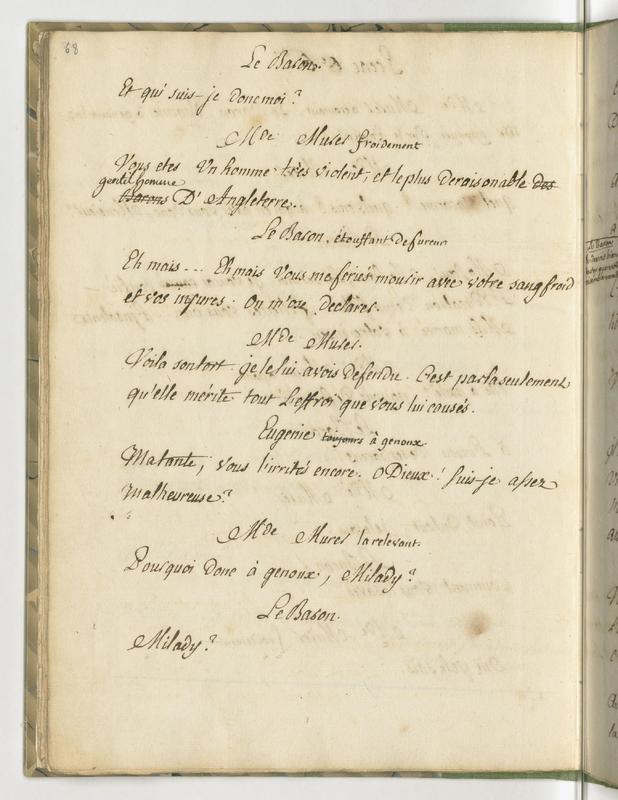 68
Le Baron.
Et qui suis-je donc moi?
Mde Murer froidement
Vous etes Un homme très violent, et le plus deraisonable des
gentilhomme
Barons D'Angleterre..
Le Baron, étouffant de fureur
Eh mais... Eh mais Vous me feriés mourir avec votre sang froid
et vos injures. On m'ose Declarer.
Mde Murer.
Voila son tort. je le lui avois defendu. C'est par la seulement
qu'elle mérite tout L'effroi que vous lui causés.
Eugenie toujours à genoux.
Ma tante, Vous l'irrités encore. O Dieux! Suis-je assez
malheureuse?
Mde Murer la relevant.
Pourquoi Donc à genoux, Milady?
Le Baron.
Milady?
Le Baron